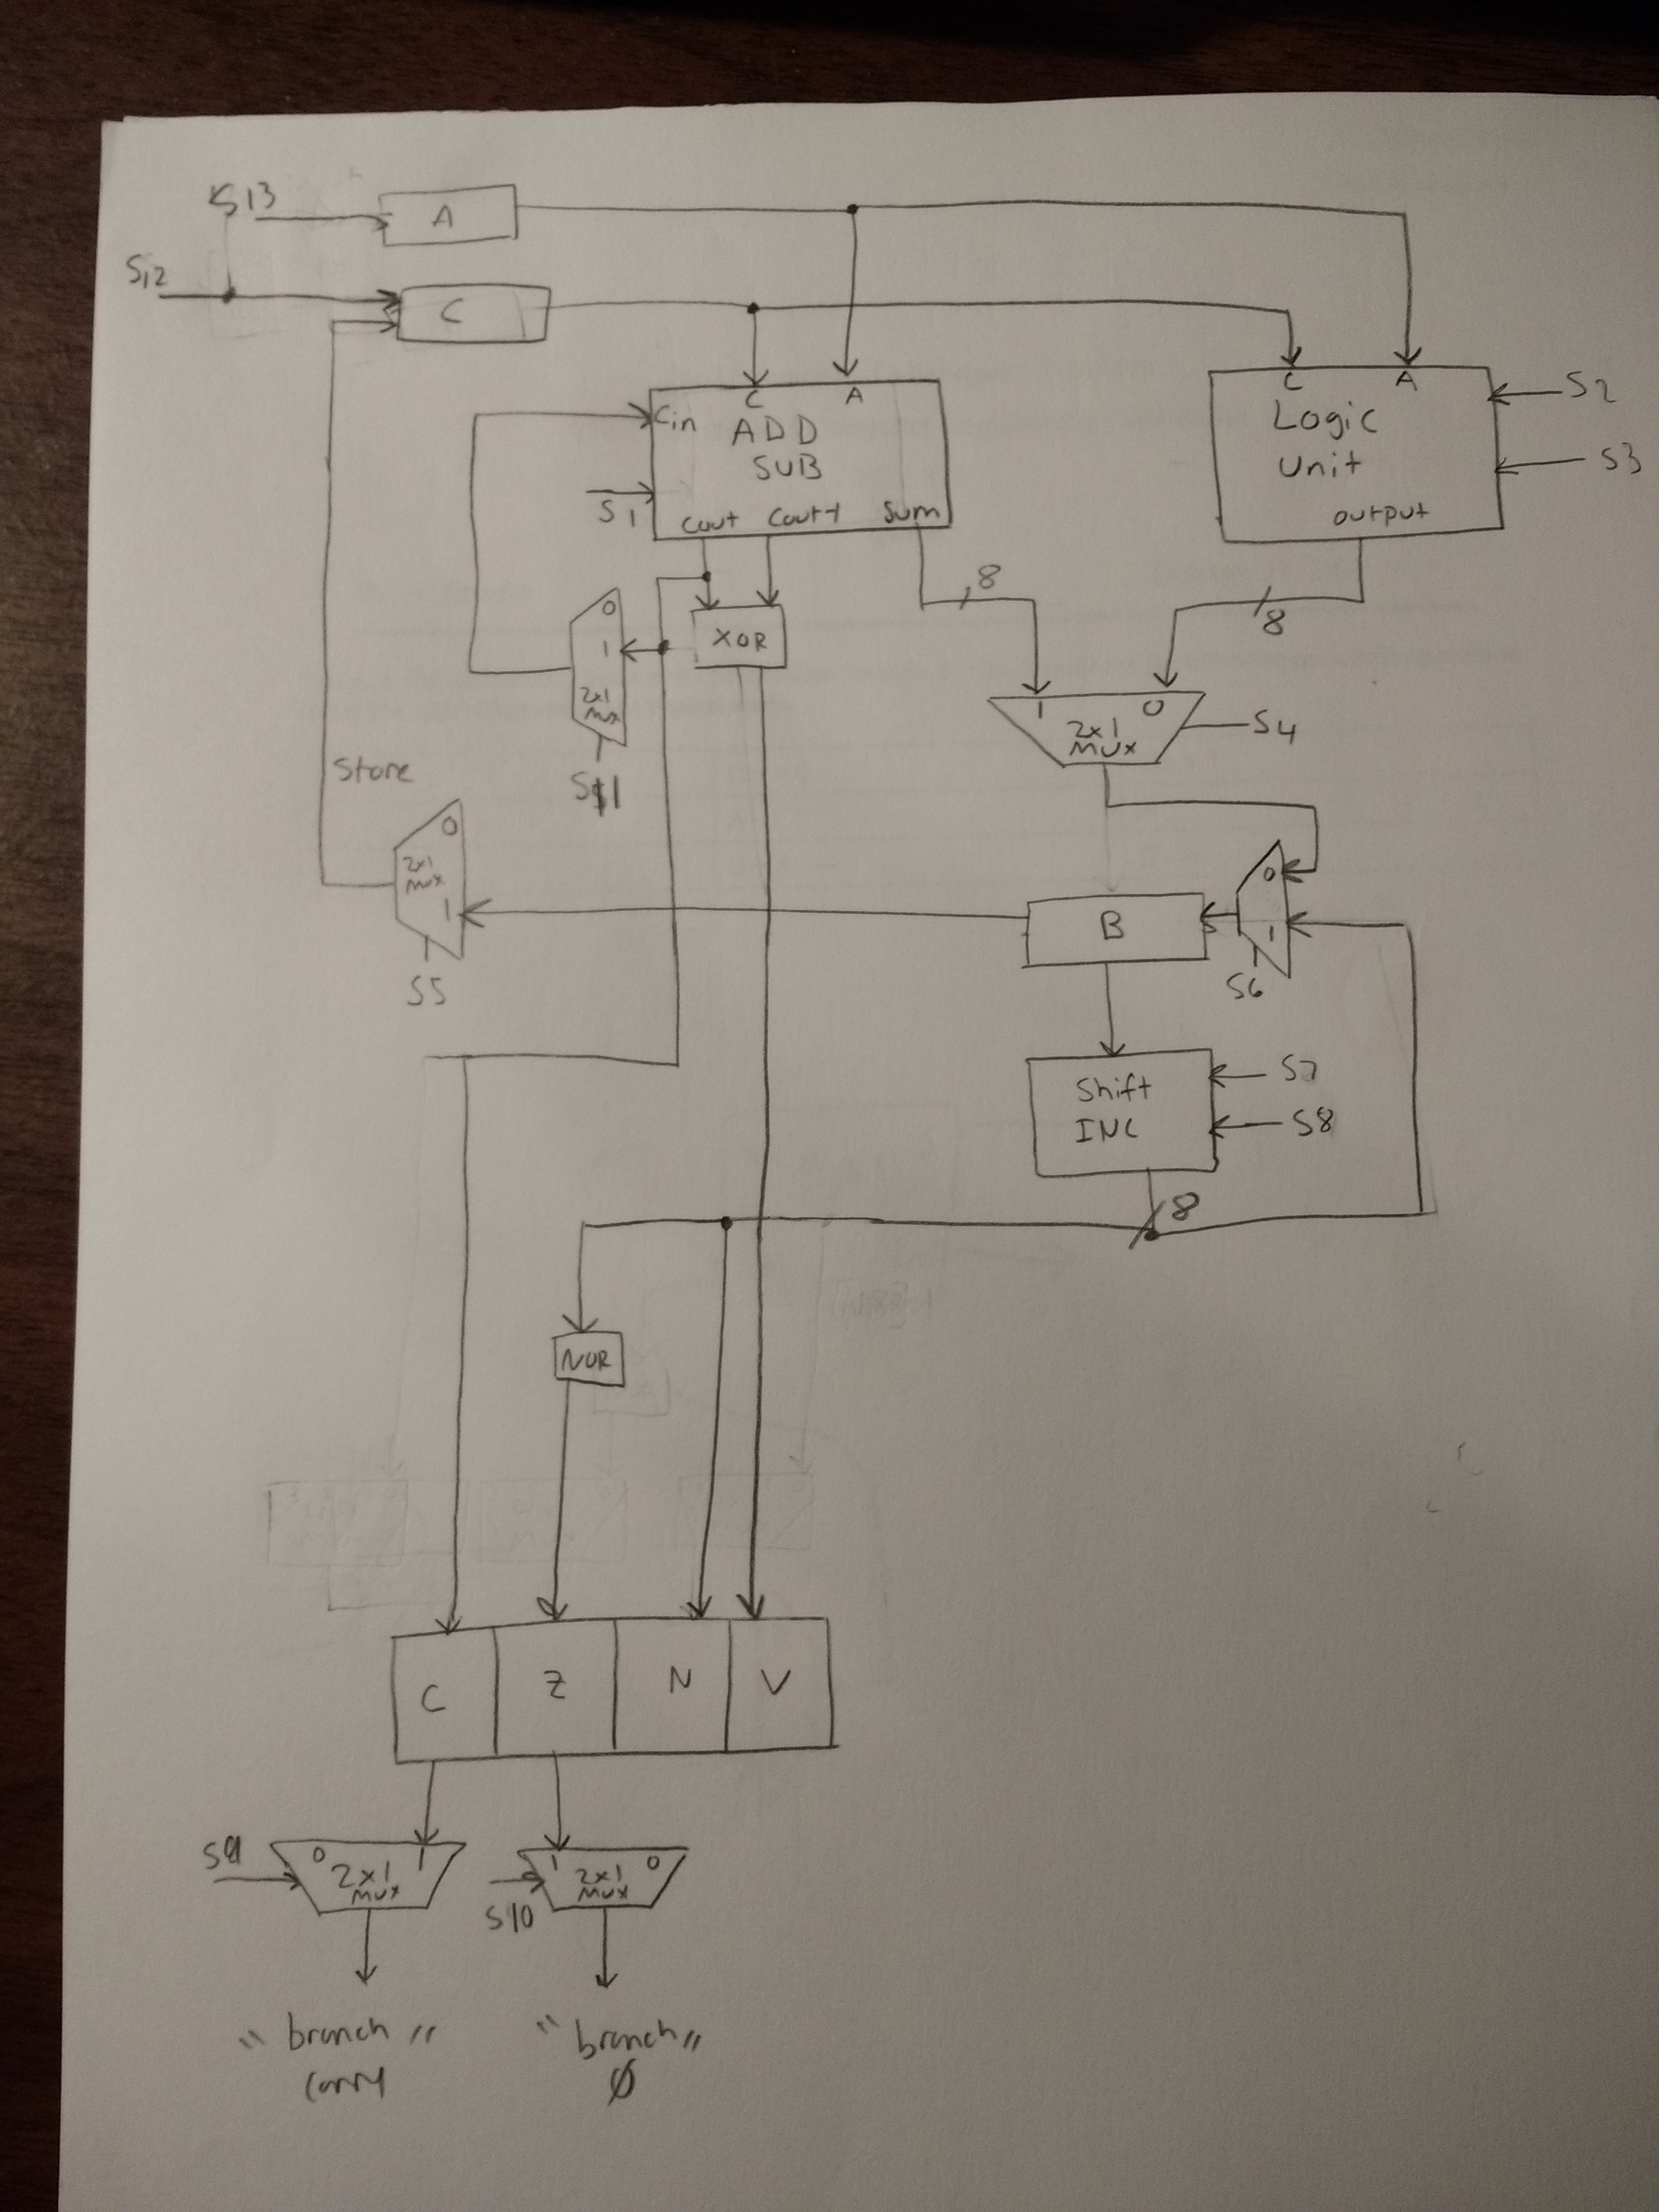 S13
A
S12
C
C A
Cin ADD
SUB
S1
Cout Cout-1 Sum
C A
Logic
Unit
output
S2
S3
8
8
0
1
2x1
Mux
XOR
1 0
2x1
MUX
S4
Store
0
2x1
mux
1
S5
B
0
1
S6
Shift
INC
S7
S8
8
NOR
C Z N V
S9
0 1
2x1
MUX
S10
1 0
2x1
MUX
"branch"
carry
"branch"
Ø